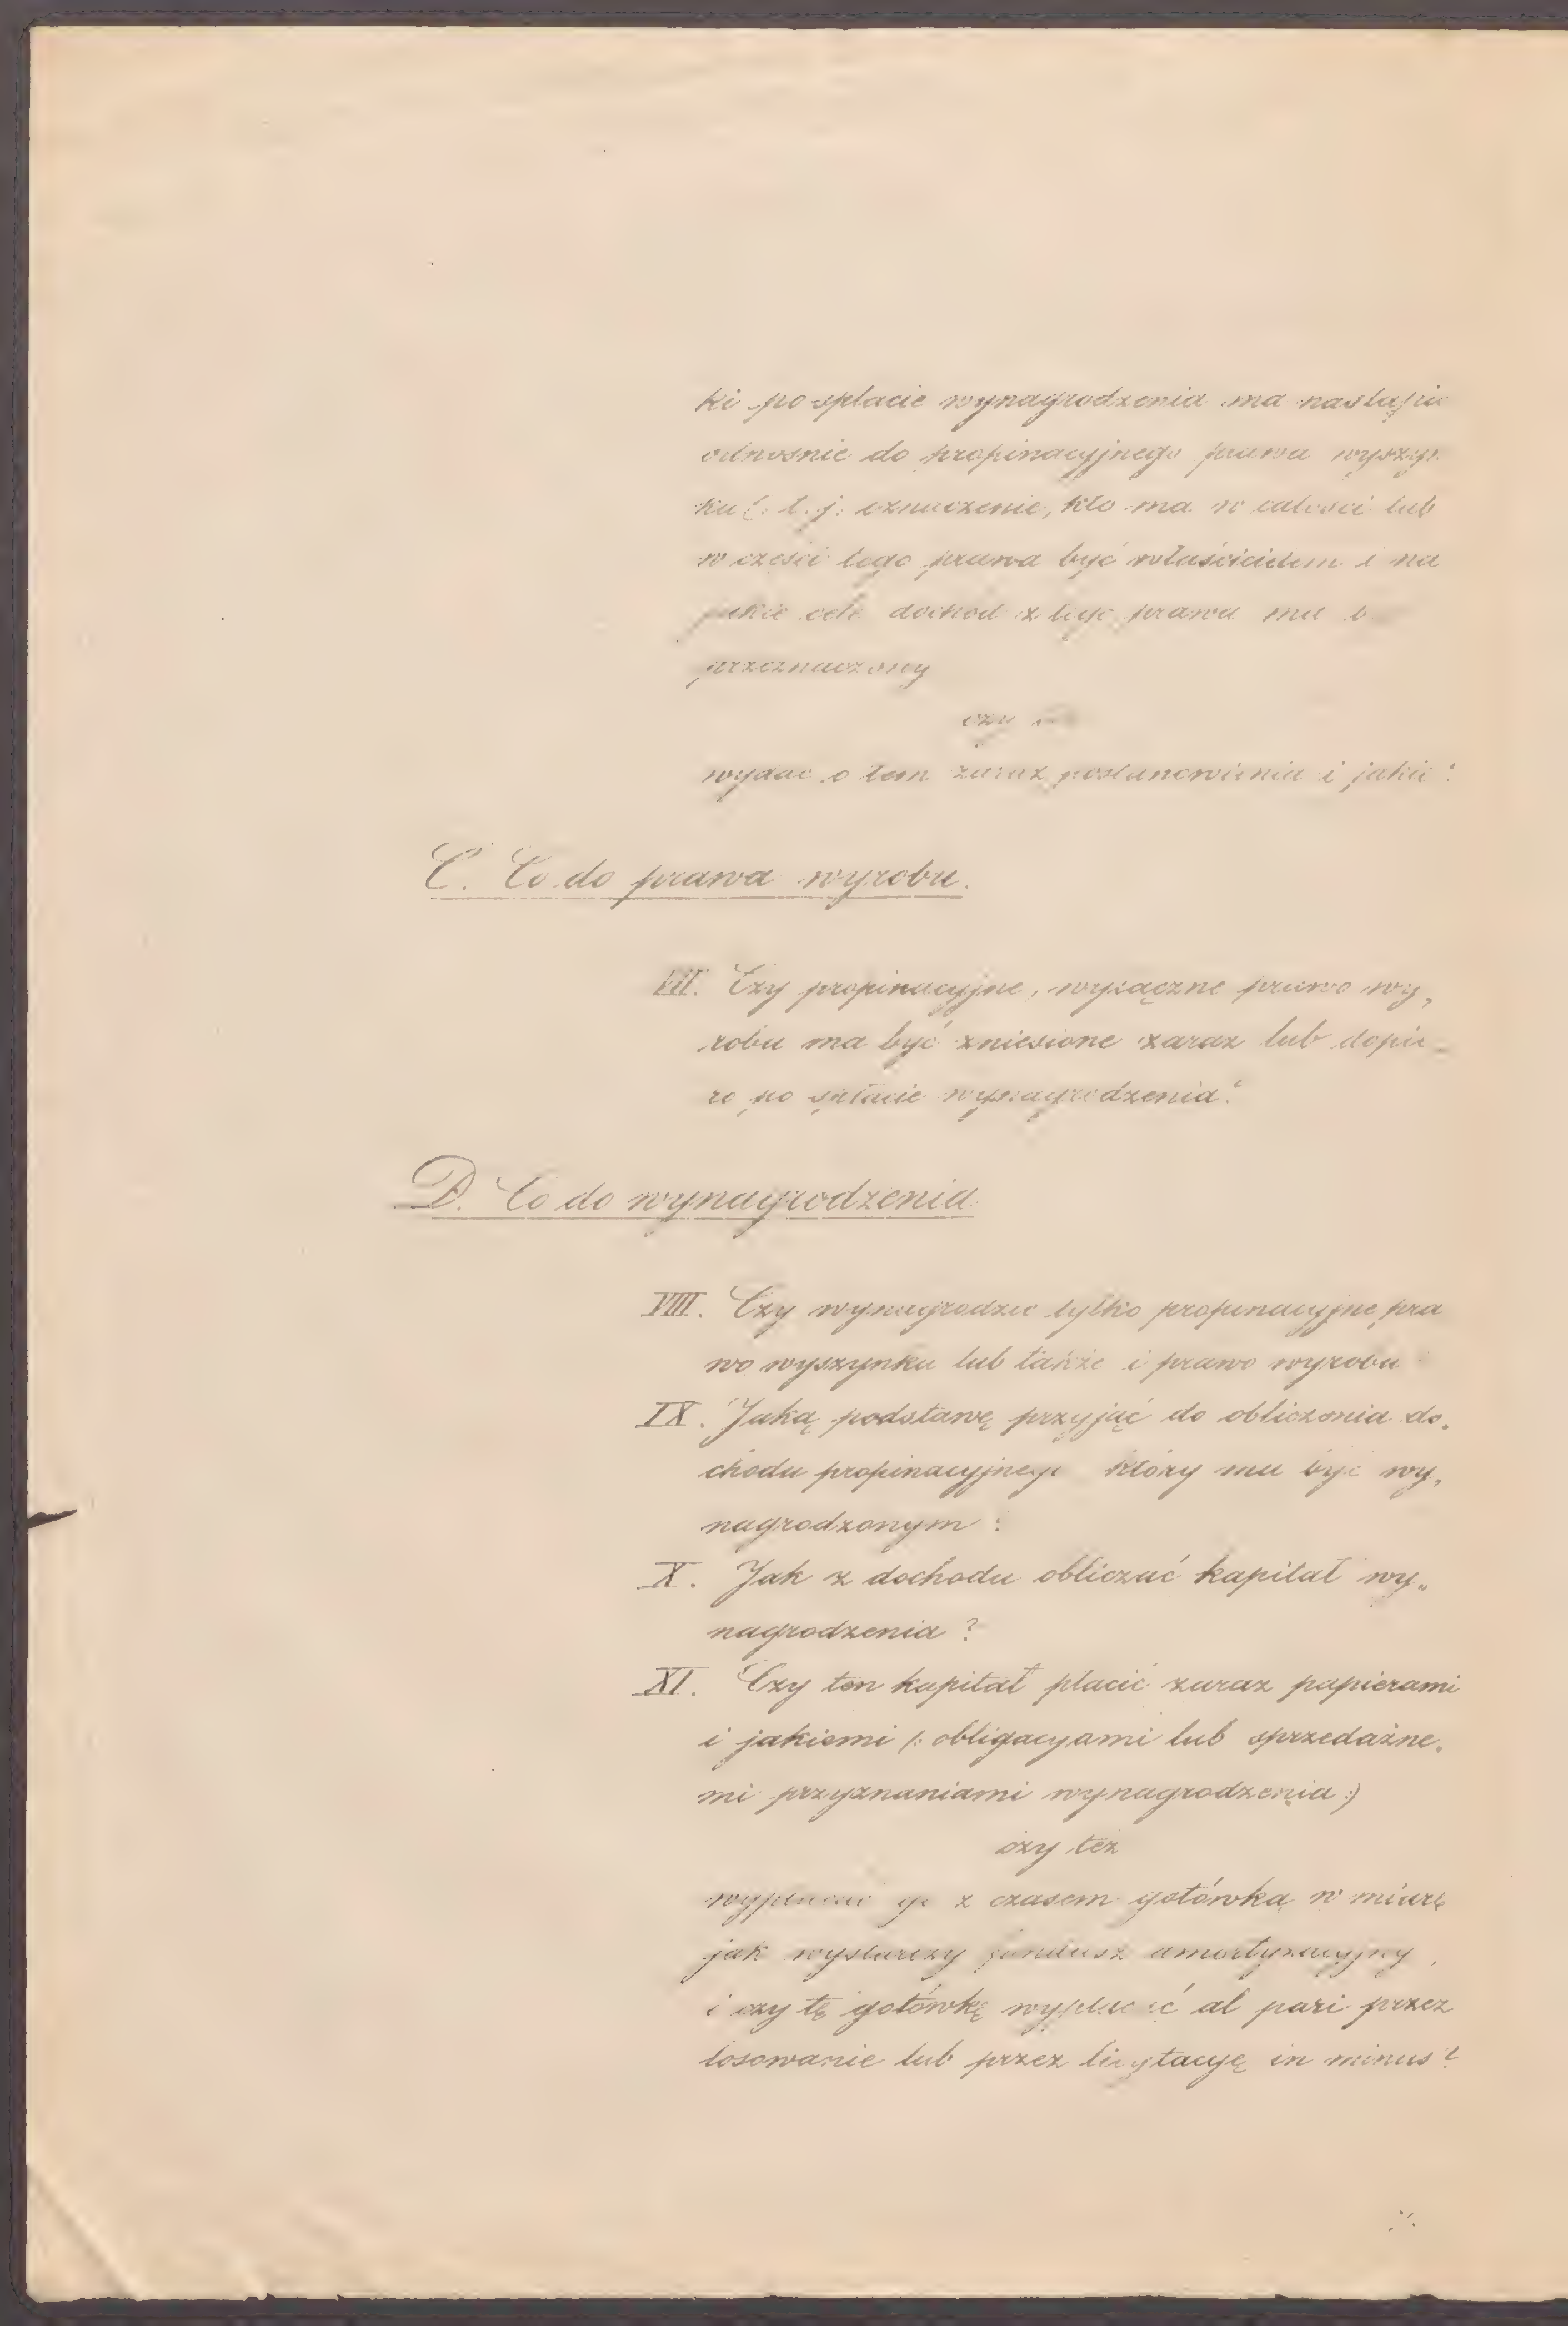 ki po spłacie wynagrodzenia ma nastąpić
odnośnie do propinacyjnego prawa wyszyn
ku (: t. j: oznaczenie, kto ma w całości lub
w części tego prawa być właścicielem i na
jakie cele dochod z tego prawa ma
przeznaczony
czy
wydać o tem zaraz postanowienia i jakie?
C. Co do prawa wyrobu.
VII. Czy propinacyjne, wyłączne prawo wy„
robu ma być zniesione zaraz lub dopie-
ro po spłacie wynagrodzenia?
D. Co do wynagrodzenia
VIII. Czy wynagrodzić tylko propinacyjne pra
wo wyszynku lub także i prawo wyrobu
IX. Jaką podstawę przyjąć do obliczenia do„
chodu propinacyjnego który ma być wy„
nagrodzonym?
X. Jak z dochodu obliczać kapitał wy„
nagrodzenia?
XI. Czy ten kapitał płacić zaraz papierami
i jakiemi (: obligacyami lub sprzedażne„
mi przyznaniami wynagrodzenia :)
czy też
wypłacać go z czasem gotówką w miarę
jak wystarczy fundusz amortyzacyjny
i czy tę gotówkę wypłacać al pari przez
losowanie lub przez licytacyę in minus?